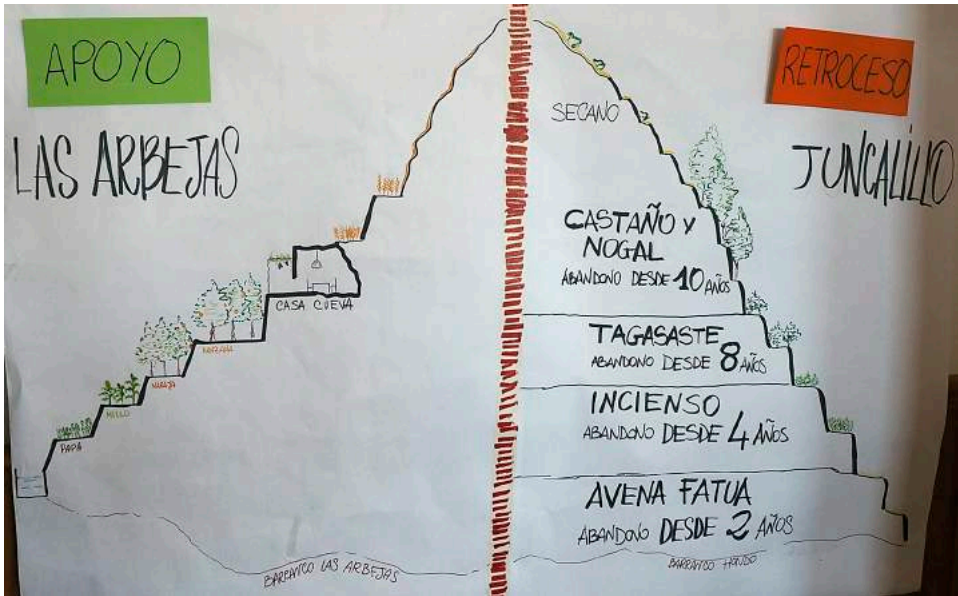 APOYO
LAS ARBEJAS
CASA CUEVA
NARANJA
MILLO
PAPA
BARRANCO LAS ARBEJAS
RETROCESO
JUNCALILLO
SECANO
CASTAÑO Y
NOGAL
ABANDONO DESDE 10 AÑOS
TAGASASTE
ABANDONO DESDE 8 AÑOS
INCIENSO
ABANDONO DESDE 4 AÑOS
AVENA FATUA
ABANDONO DESDE 2 AÑOS
BARRANCO HONDO